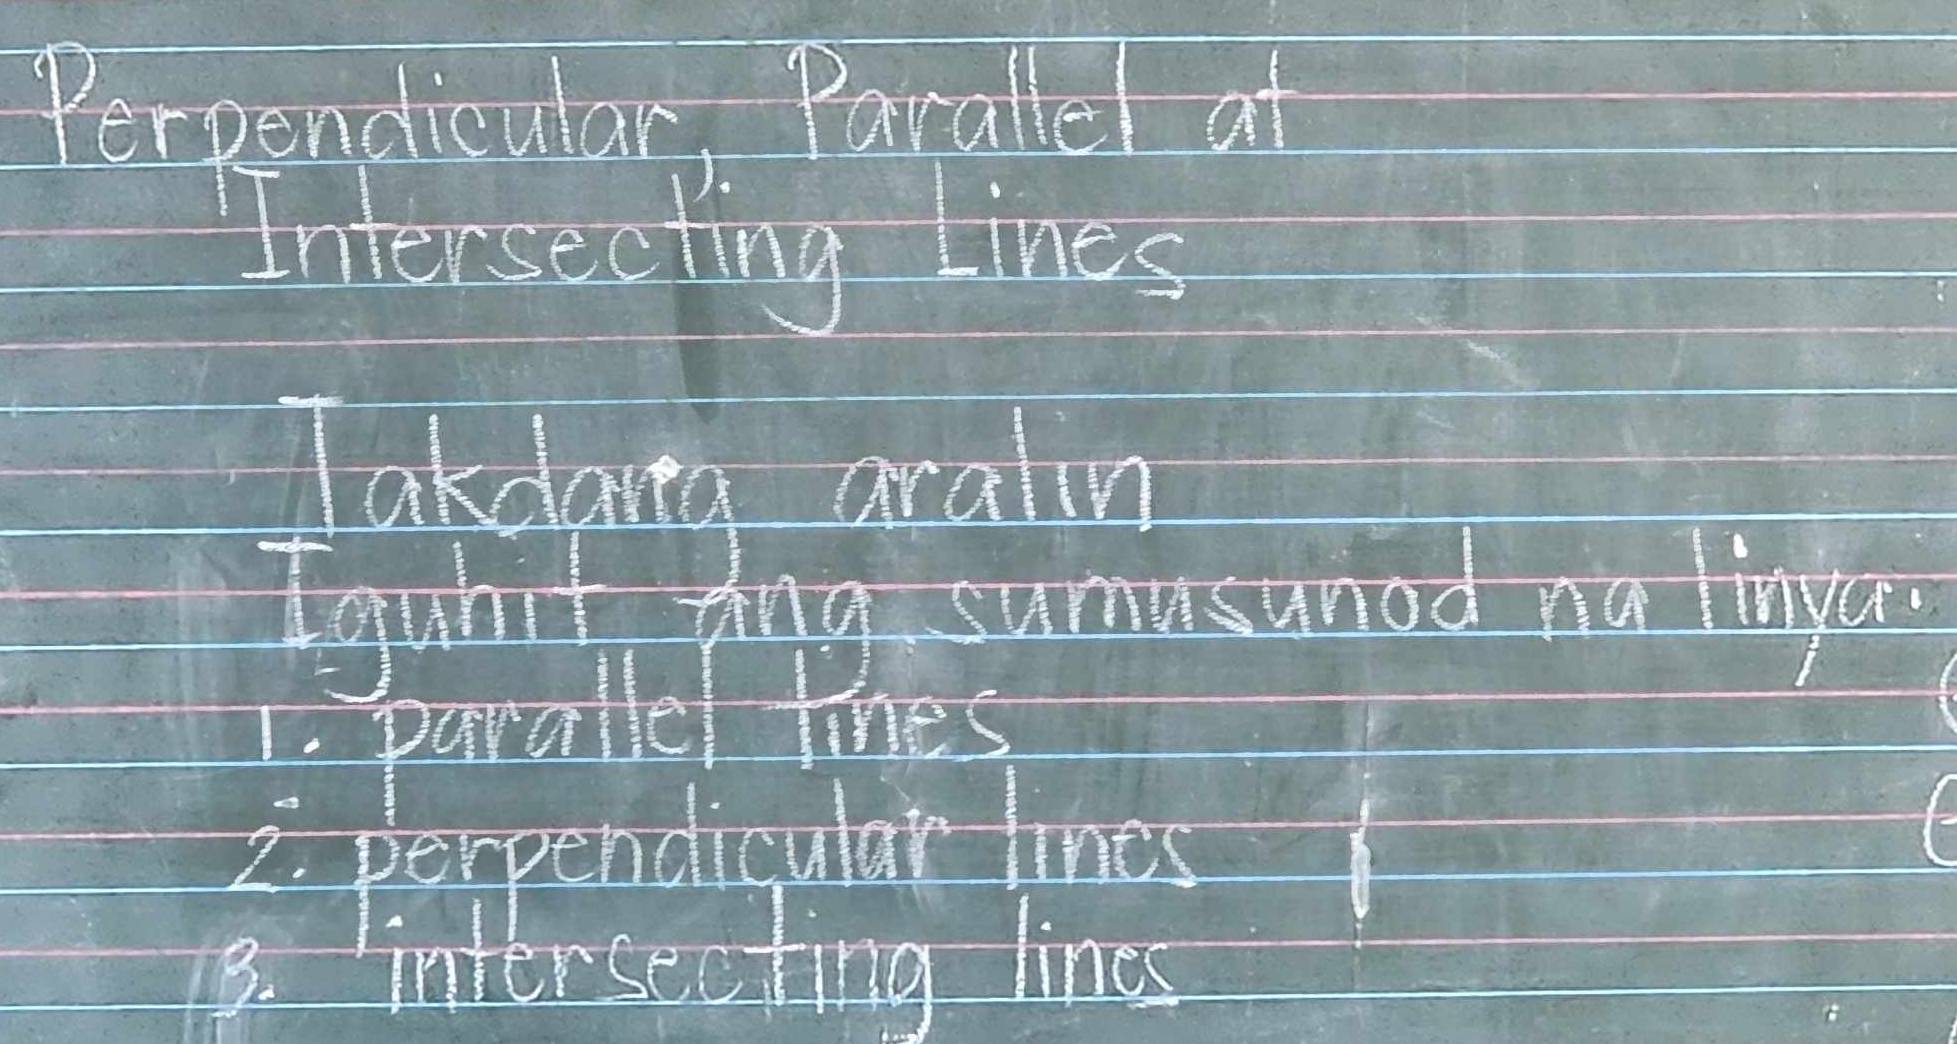 Perpendicular, Parallel at
Intersecting Lines
Takdang aralin
Iguhit ang sumusunod na linya.
1. parallel lines
2. perpendicular lines
3. intersecting lines